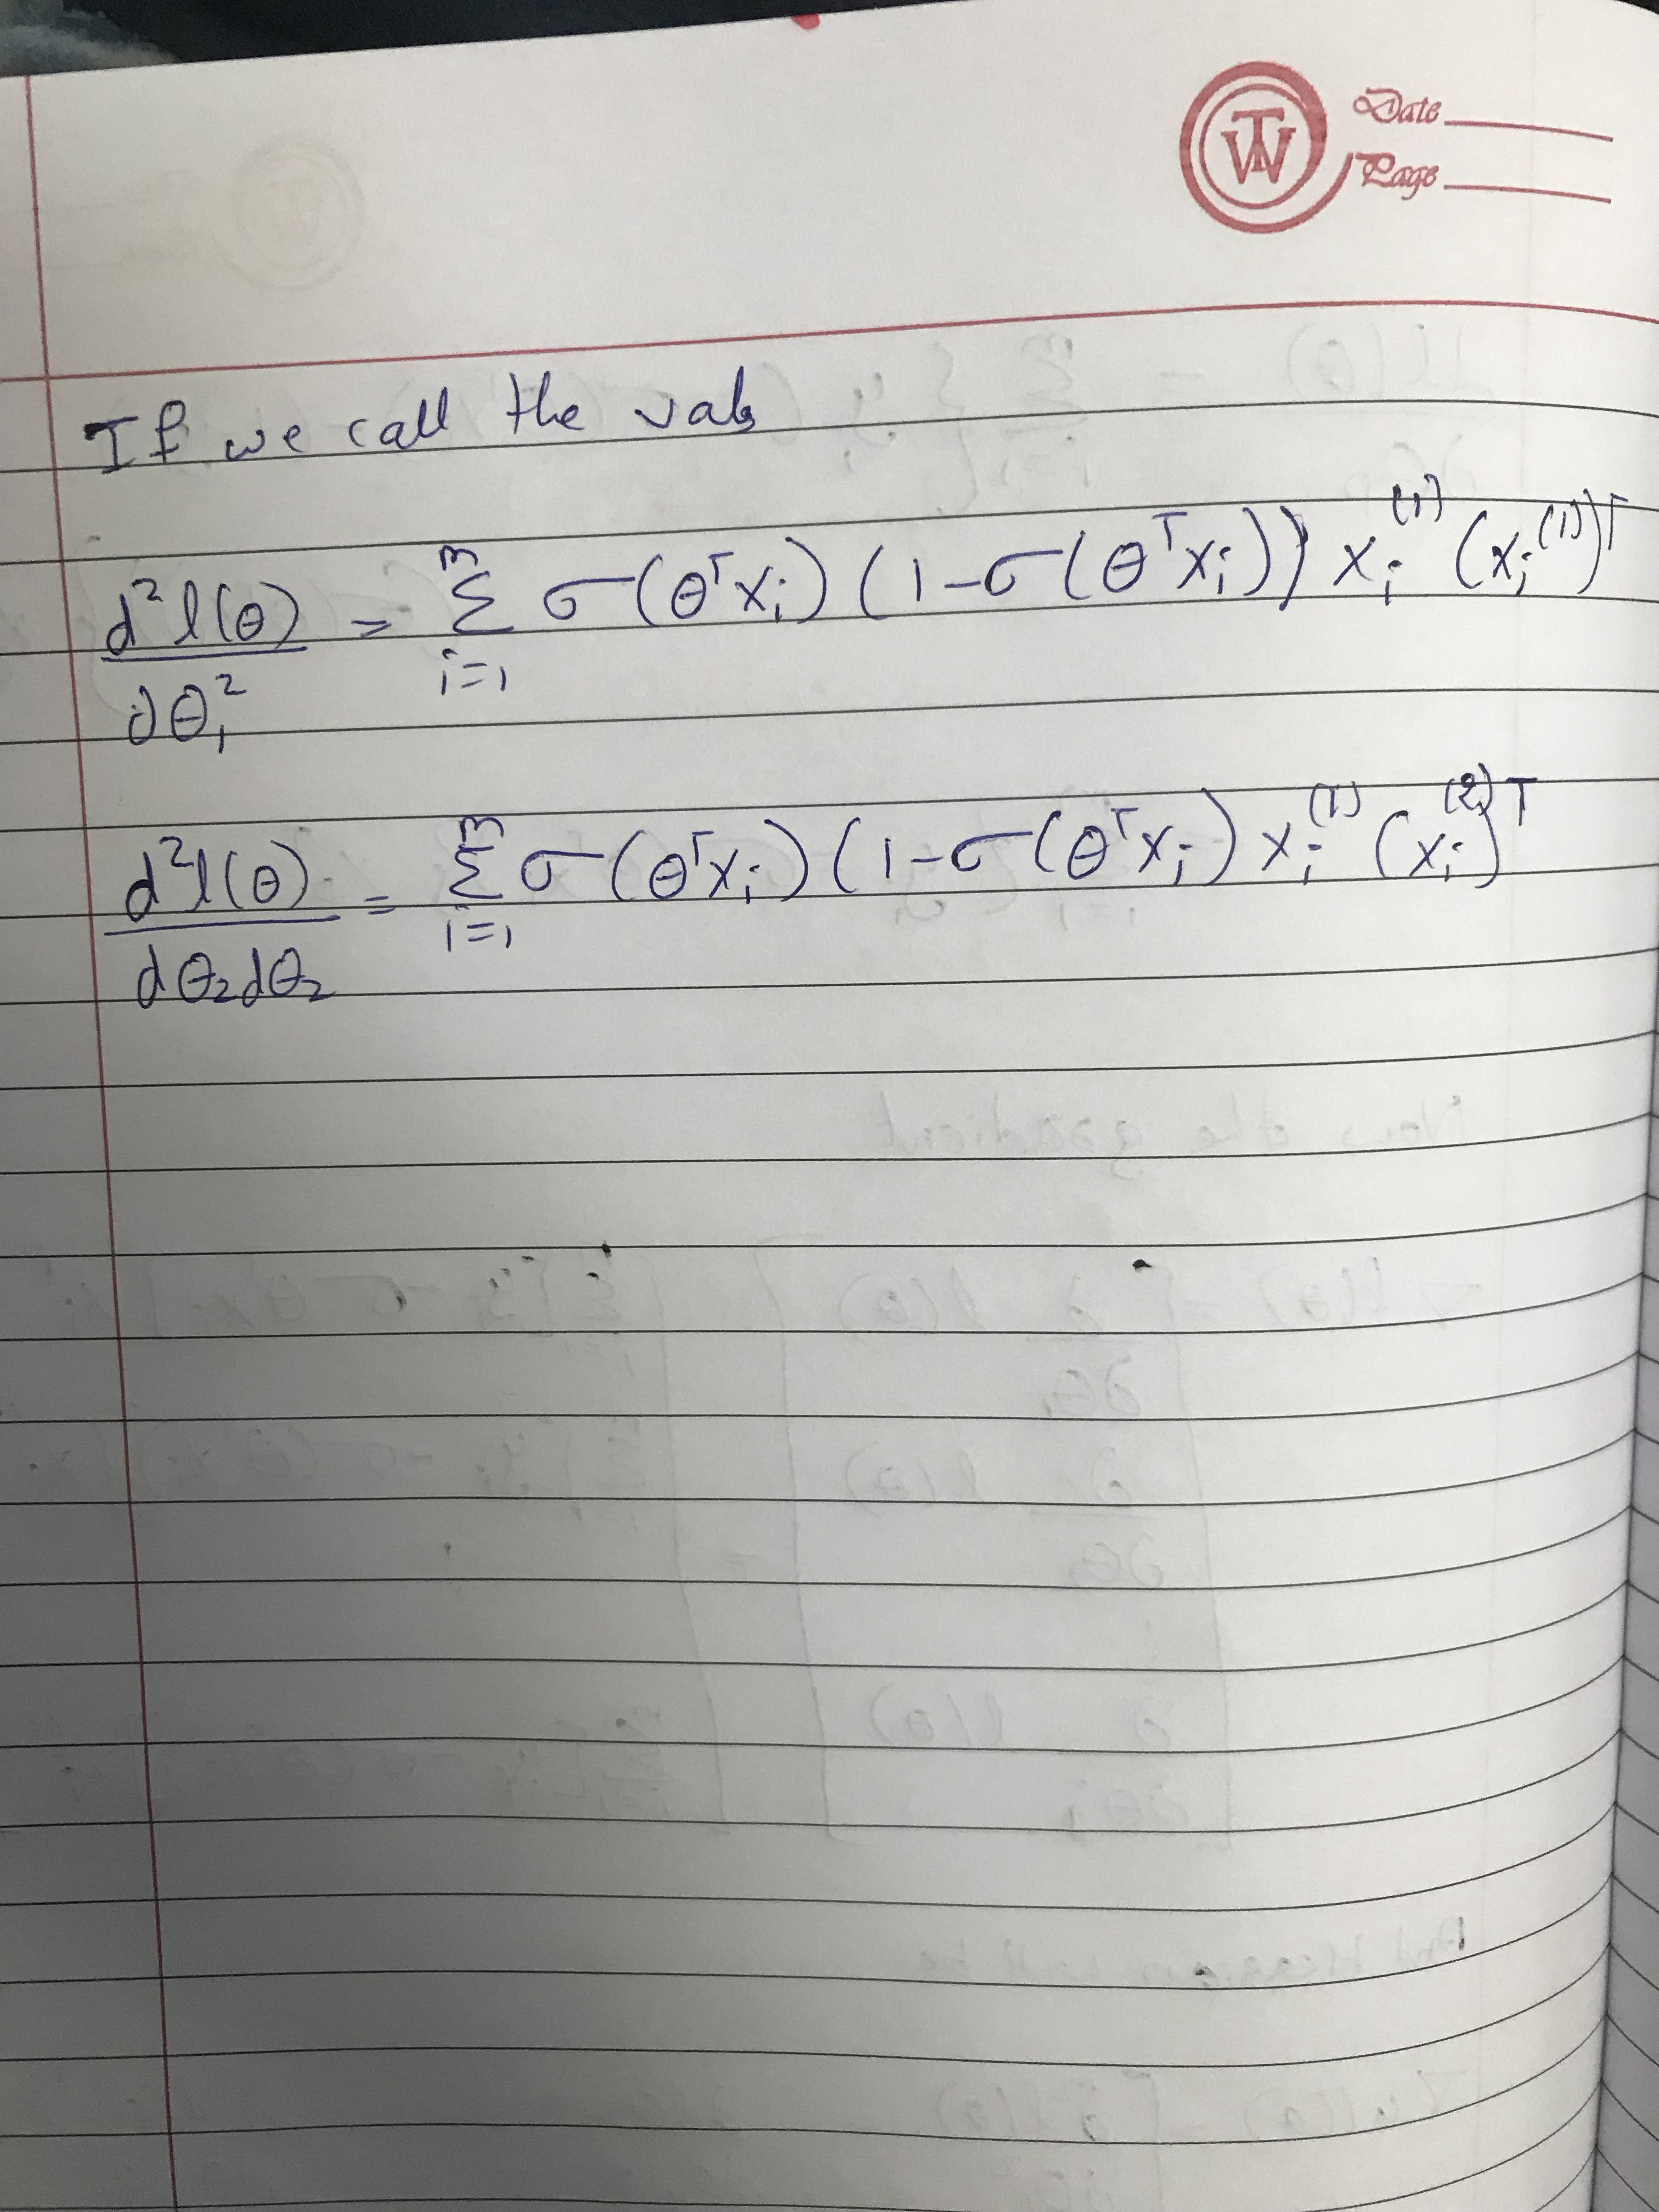 TW
Date
Page
If we call the vals
d²l(θ)/dθ₁² = Σᵢ₌₁ᵐ σ(θᵀxᵢ)(1-σ(θᵀxᵢ)) xᵢ⁽¹⁾ (xᵢ⁽¹⁾)ᵀ
d²l(θ)/dθ₂dθ₂ = Σᵢ₌₁ᵐ σ(θᵀxᵢ)(1-σ(θᵀxᵢ) xᵢ⁽¹⁾ (xᵢ⁽²⁾)ᵀ
Now the gradient